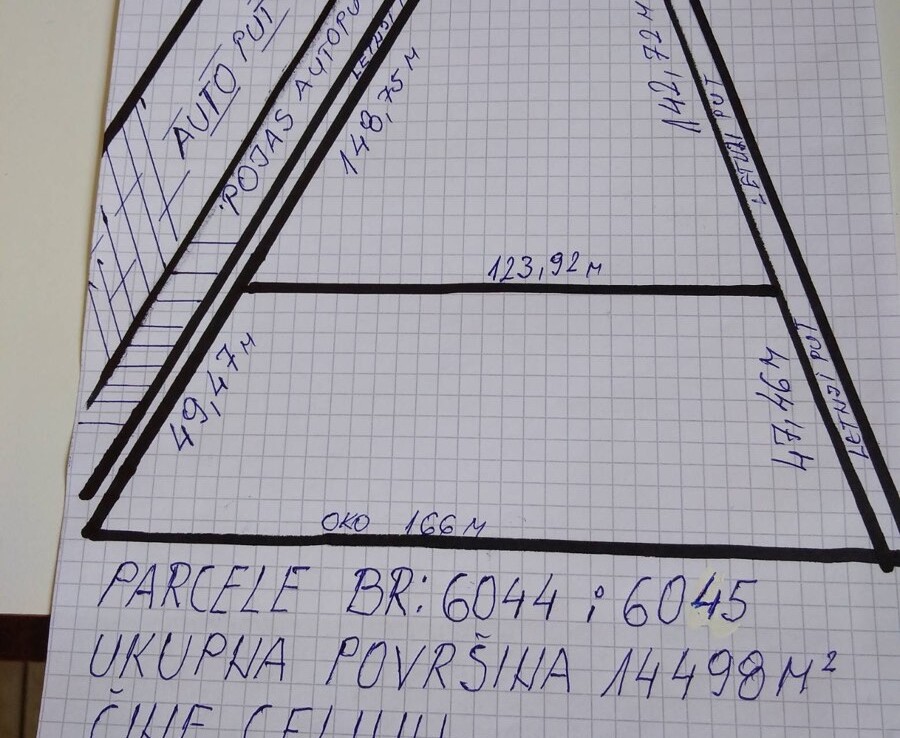 AUTO PUT
POJAS AUTOPU
LETNJI
148,75 M
142,72 M
LETNJI PUT
123,92 M
49,47 M
47,46 M
LETNJI PUT
OKO 166 M
PARCELE BR: 6044 i 6045
UKUPNA POVRŠINA 14498 M²
ČINE CELINU